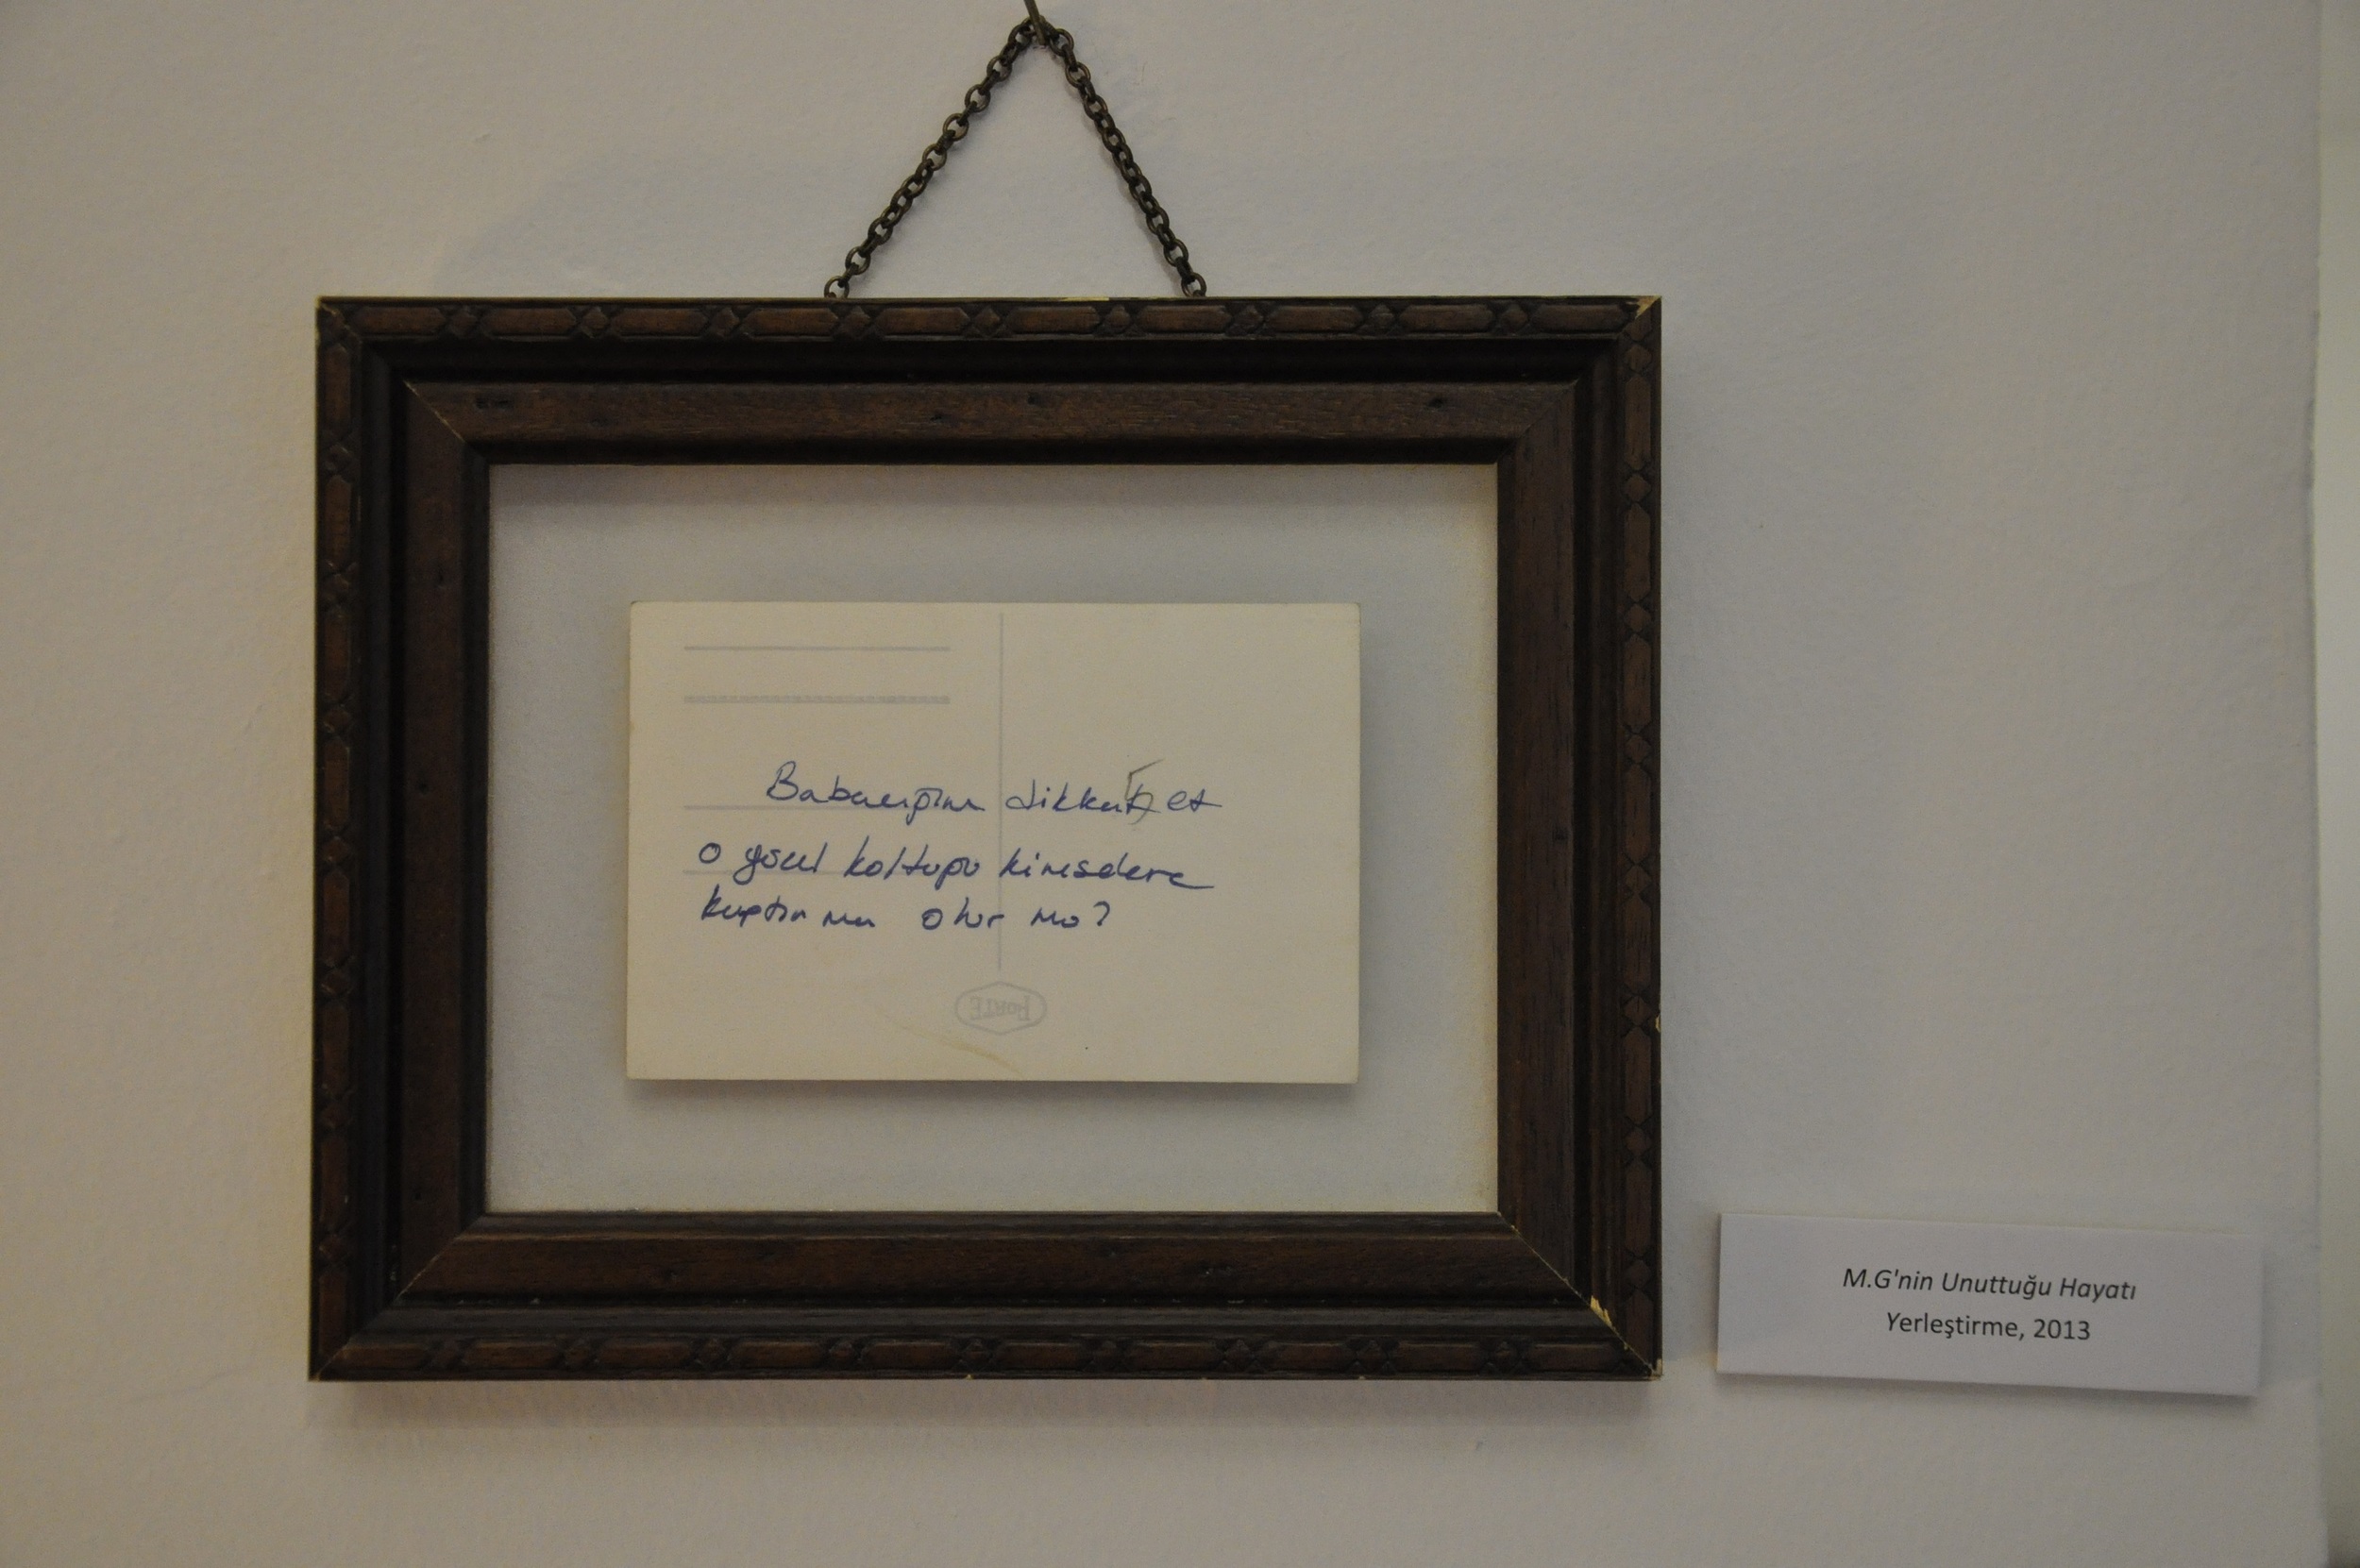 Babacığına dikkat et
o güzel koltuğu kimselere
kaptırma olur mu?
PORTE
M.G'nin Unuttuğu Hayatı
Yerleştirme, 2013